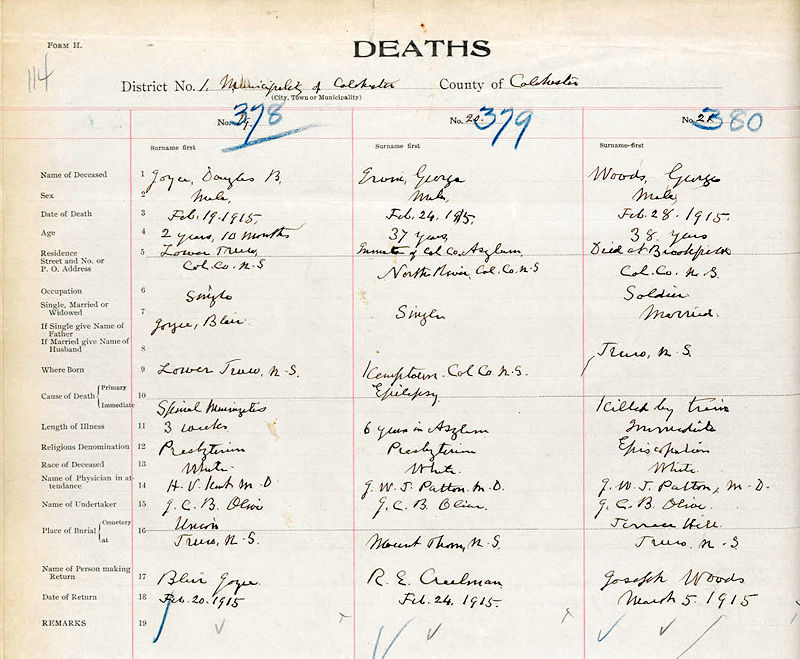 FORM H.
DEATHS
114
District No. 1, Municipality of Colchester County of Colchester
(City, Town or Municipality)
No. 19. 378 No. 20. 379 No. 21. 380
Surname first Surname first Surname first
Name of Deceased 1 Joyce, Douglas B. George Woods, George
Sex 2 Male, Male, Male,
Date of Death 3 Feb. 19. 1915, Feb. 24. 1915. Feb. 28. 1915.
Age 4 2 years, 10 months 37 years, 38 years
Residence 5 Lower Truro, Inmate of Col. Co. Asylum, Died at Brookfield
Street and No. or
P. O. Address Col. Co. N. S North River, Col. Co. N. S Col. Co. N. S.
Occupation 6 Soldier
Single, Married or
Widowed 7 Single Single Married.
If Single give Name of
Father Joyce, Blair
If Married give Name of
Husband 8
Where Born 9 Lower Truro, N. S. Kemptown. Col. Co. N. S. Truro, N. S.
Cause of Death Primary 10 Epilepsy
Immediate Spinal Meningitis Killed by train
Length of Illness 11 3 weeks 6 years in Asylum Immediate
Religious Denomination 12 Presbyterian Presbyterian Episcopalian
Race of Deceased 13 White. White. White.
Name of Physician in at-
tendance 14 H. V. Kent M. D. G. W. T. Patton. M. D. G. W. T. Patton, M. D.
Name of Undertaker 15 G. C. B. Olive G. C. B. Olive. G. C. B. Olive.
Place of Burial Cemetery 16 Union Terrace Hill.
at Truro, N. S. Mount Thom, N. S. Truro, N. S.
Name of Person making
Return 17 Blair Joyce. R. E. Creelman Joseph Woods
Date of Return 18 Feb. 20. 1915 Feb. 24, 1915. March 5. 1915
REMARKS 19